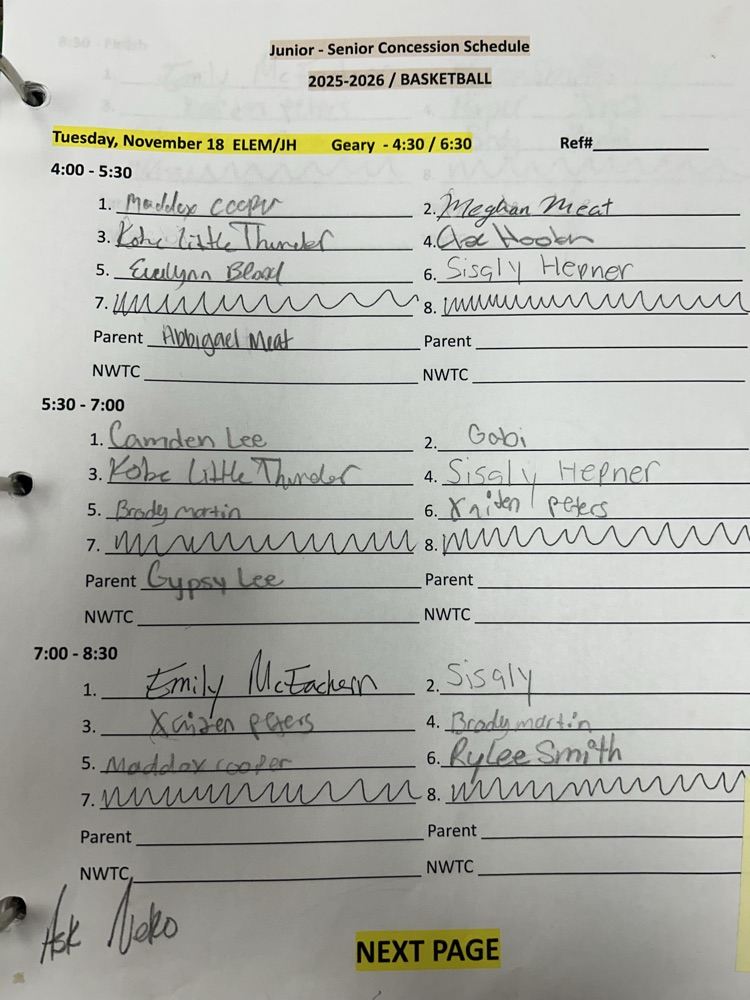 Junior - Senior Concession Schedule
2025-2026 / BASKETBALL
Tuesday, November 18 ELEM/JH Geary - 4:30 / 6:30 Ref#
4:00 - 5:30
1. Maddox cooper 2. Meghan Meat
3. Kobe Little Thunder 4.
5. Evelynn Blood 6. Sisaly Hepner
7. 8.
Parent Abbigael Meat Parent
NWTC NWTC
5:30 - 7:00
1. Camden Lee 2. Gabi
3. Kobe Little Thunder 4. Sisaly Hepner
5. Brady martin 6. Kaiden peters
7. 8.
Parent Gypsy Lee Parent
NWTC NWTC
7:00 - 8:30
1. Emily McEachern 2. Sisaly
3. Kaiden peters 4. Brady martin
5. Maddox cooper 6. Rylee Smith
7. 8.
Parent Parent
NWTC NWTC
Ask Neko
NEXT PAGE